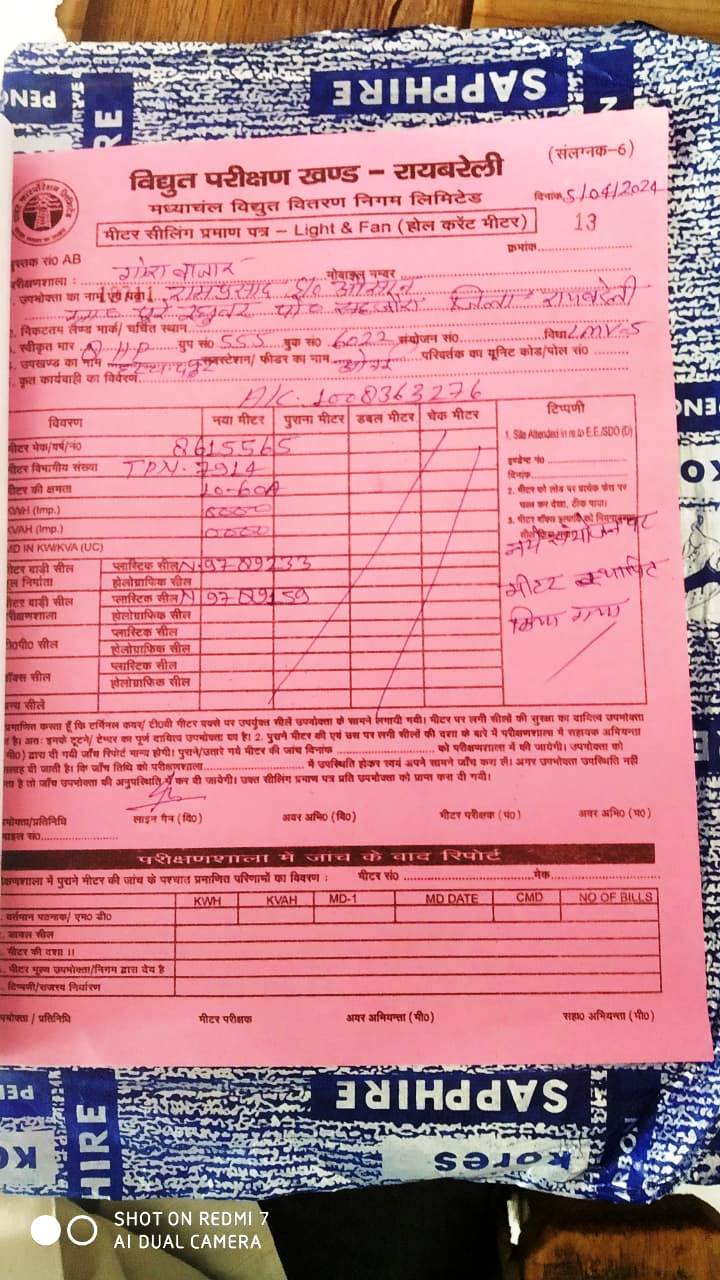 SAPPHIRE
(संलग्नक-6)
विद्युत परीक्षण खण्ड - रायबरेली
मध्याचंल विद्युत वितरण निगम लिमिटेड
दिनांक 5/04/2024
मीटर सीलिंग प्रमाण पत्र - Light & Fan (होल करेंट मीटर)
13
क्रमांक
पुस्तक सं0 AB
परीक्षणशाला : गोरा बाजार मोबाइल नम्बर
उपभोक्ता का नाम एवं पता रामप्रसाद
जिला - रायबरेली
निकटतम लैण्ड मार्क/ चर्चित स्थान
स्वीकृत भार HP ग्रुप सं0 555 बुक सं0 6022 संयोजन सं0 विधा LMV-5
उपखण्ड का नाम सबस्टेशन/ फीडर का नाम परिवर्तक का यूनिट कोड/पोल सं0
कृत कार्यवाही का विवरण
A/C. 1008363276
विवरण नया मीटर पुराना मीटर डबल मीटर चेक मीटर टिप्पणी
मीटर मेक/वर्ष/नं0 8615565
1. Site Attended in re to E.E./SDO (D)
मीटर विभागीय संख्या TPN. 7914
इण्डेण्ट नं0
मीटर की क्षमता 10-60A
दिनांक
KWH (Imp.) 0000
2. मीटर को लोड पर प्रत्येक फेस पर
चला कर देखा, ठीक पाया।
KVAH (Imp.) 0000
MD IN KW/KVA (UC)
नये संयोजन पर
मीटर स्थापित
किया गया
मीटर बाडी सील प्लास्टिक सील N.9789233
मूल निर्माता होलोग्राफिक सील
मीटर बाडी सील प्लास्टिक सील N 9789159
परीक्षणशाला होलोग्राफिक सील
टी0पी0 सील प्लास्टिक सील
होलोग्राफिक सील
बॉक्स सील प्लास्टिक सील
होलोग्राफिक सील
अन्य सीलें
प्रमाणित करता हूँ कि टर्मिनल कवर/ टी0वी मीटर बक्से पर उपर्युक्त सीलें उपभोक्ता के सामने लगायी गयी। मीटर पर लगी सीलों की सुरक्षा का दायित्व उपभोक्ता
है। अतः इनके टूटने/ टेम्पर का पूर्ण दायित्व उपभोक्ता का है। 2. पुराने मीटर की एवं उस पर लगी सीलों की दशा के बारे में परीक्षणशाला में सहायक अभियन्ता
(मी0) द्वारा दी गयी जाँच रिपोर्ट मान्य होगी। पुराने/उतारे गये मीटर की जांच दिनांक को परीक्षणशाला में की जायेगी। उपभोक्ता को
सलाह दी जाती है। कि जाँच तिथि को परीक्षणशाला में उपस्थित होकर स्वयं अपने सामने जाँच करा लें। अगर उपभोक्ता उपस्थिति नहीं
होता है तो जाँच उपभोक्ता की अनुपस्थिति में कर दी जायेगी। उक्त सीलिंग प्रमाण पत्र प्रति उपभोक्ता को प्राप्त करा दी गयी।
उपभोक्ता/प्रतिनिधि लाइन मैन (वि0) अवर अभि0 (वि0) मीटर परीक्षक (प0) अवर अभि0 (प0)
मोबाइल सं0
परीक्षणशाला में जांच के बाद रिपोर्ट
परीक्षणशाला में पुराने मीटर की जांच के पश्चात प्रमाणित परिणामों का विवरण : मीटर सं0 मेक
KWH KVAH MD-1 MD DATE CMD NO OF BILLS
वर्तमान पठनांक/ एम0 डी0
डायल सील
मीटर की दशा ।।
मीटर मूल्य उपभोक्ता/निगम द्वारा देय है
टिप्पणी/राजस्व निर्धारण
उपभोक्ता / प्रतिनिधि मीटर परीक्षक अवर अभियन्ता (मी0) सहा0 अभियन्ता (मी0)
SAPPHIRE
kores
SHOT ON REDMI 7
AI DUAL CAMERA